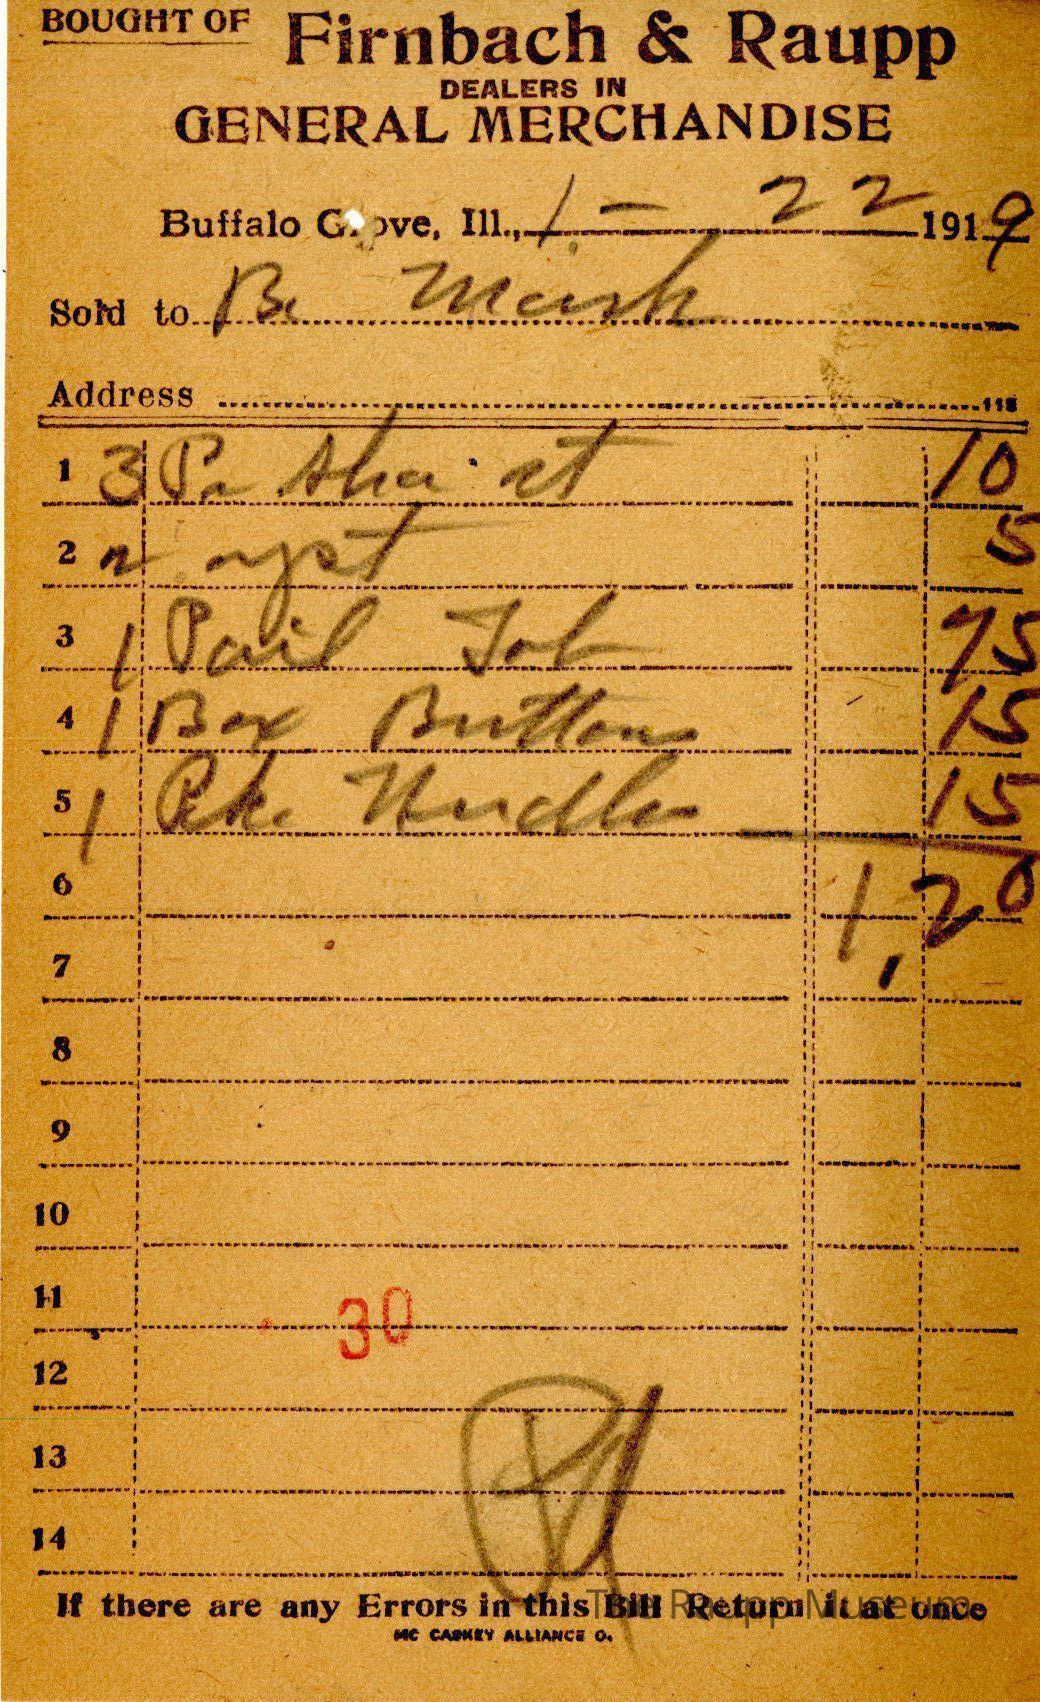 BOUGHT OF Firnbach & Raupp
DEALERS IN
GENERAL MERCHANDISE
Buffalo Grove, Ill., 1 - 22 1919
Sold to B. Mish
Address 118
1 3 Pr 10
2 2 5
3 1 Pail Tob 75
4 1 Box Buttons 15
5 1 Pkg Needles 15
6 1,20
7
8
9
10
11 30
12
13
14
If there are any Errors in this Bill Return it at once
The Raupp Museum
MC CASKEY ALLIANCE O.